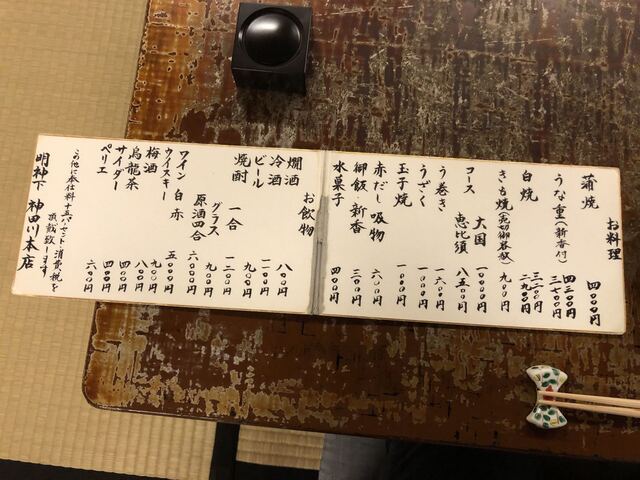 お料理
蒲焼 四〇〇〇円
うな重(新香付) 四三〇〇円
三七〇〇円
白焼 三三〇〇円
二九〇〇円
きも焼 九〇〇円
コース 大国 一〇〇〇〇円
恵比須 八五〇〇円
う巻き 一六〇〇円
うざく 一〇〇〇円
玉子焼 一〇〇〇円
赤だし 吸物 六〇〇円
御飯・新香 三〇〇円
水菓子 四〇〇円
お飲物
燗酒 八〇〇円
冷酒 一二〇〇円
ビール 九〇〇円
焼酎 一合 一二〇〇円
グラス 九〇〇円
原酒四合
ワイン 白 赤 五〇〇〇円
ウイスキー 九〇〇円
梅酒 八〇〇円
烏龍茶 四〇〇円
サイダー 四〇〇円
ペリエ 六〇〇円
この他に奉仕料十五パーセント・消費税を
頂戴致します
明神下 神田川本店